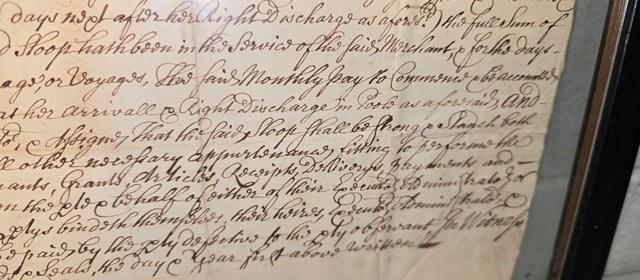 days next after her Right Discharge as afores:d) the full Sum of
d Sloop hath been in the Service of the said Merchant, & for the days
age, or Voyages, The said Monthly pay to Commence & be accounted
at her Arrivall & Right Discharge in Poole as aforesaid, And
To, & Assignes, That the said Sloop shall be strong & Stanch both
ll other necessary appurtenances fitting to performe the
nants, Grants, Articles, Receipts, Deliverys, payments and
on the pte & behalf of either of their Executrs Administrators or
ptys bindeth themselves, their heires, Executrs Administrators &
be paid, by the pty defective to the pty observant, In Witness
ds & Seals, the day & Year first above written